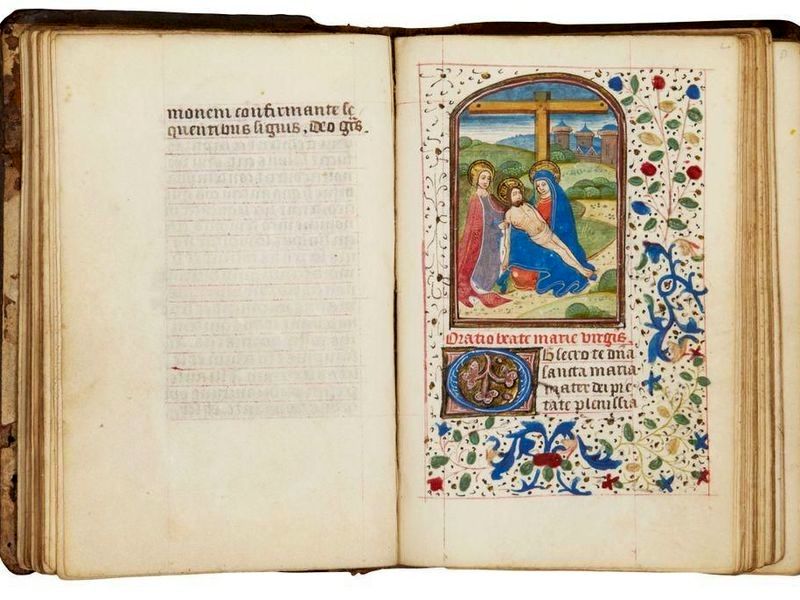 monem confirmante se
quentibus signis. deo grs.
Oratio beate marie virgis.
Obsecro te dna
sancta maria
mater dei pie
tate plenissia